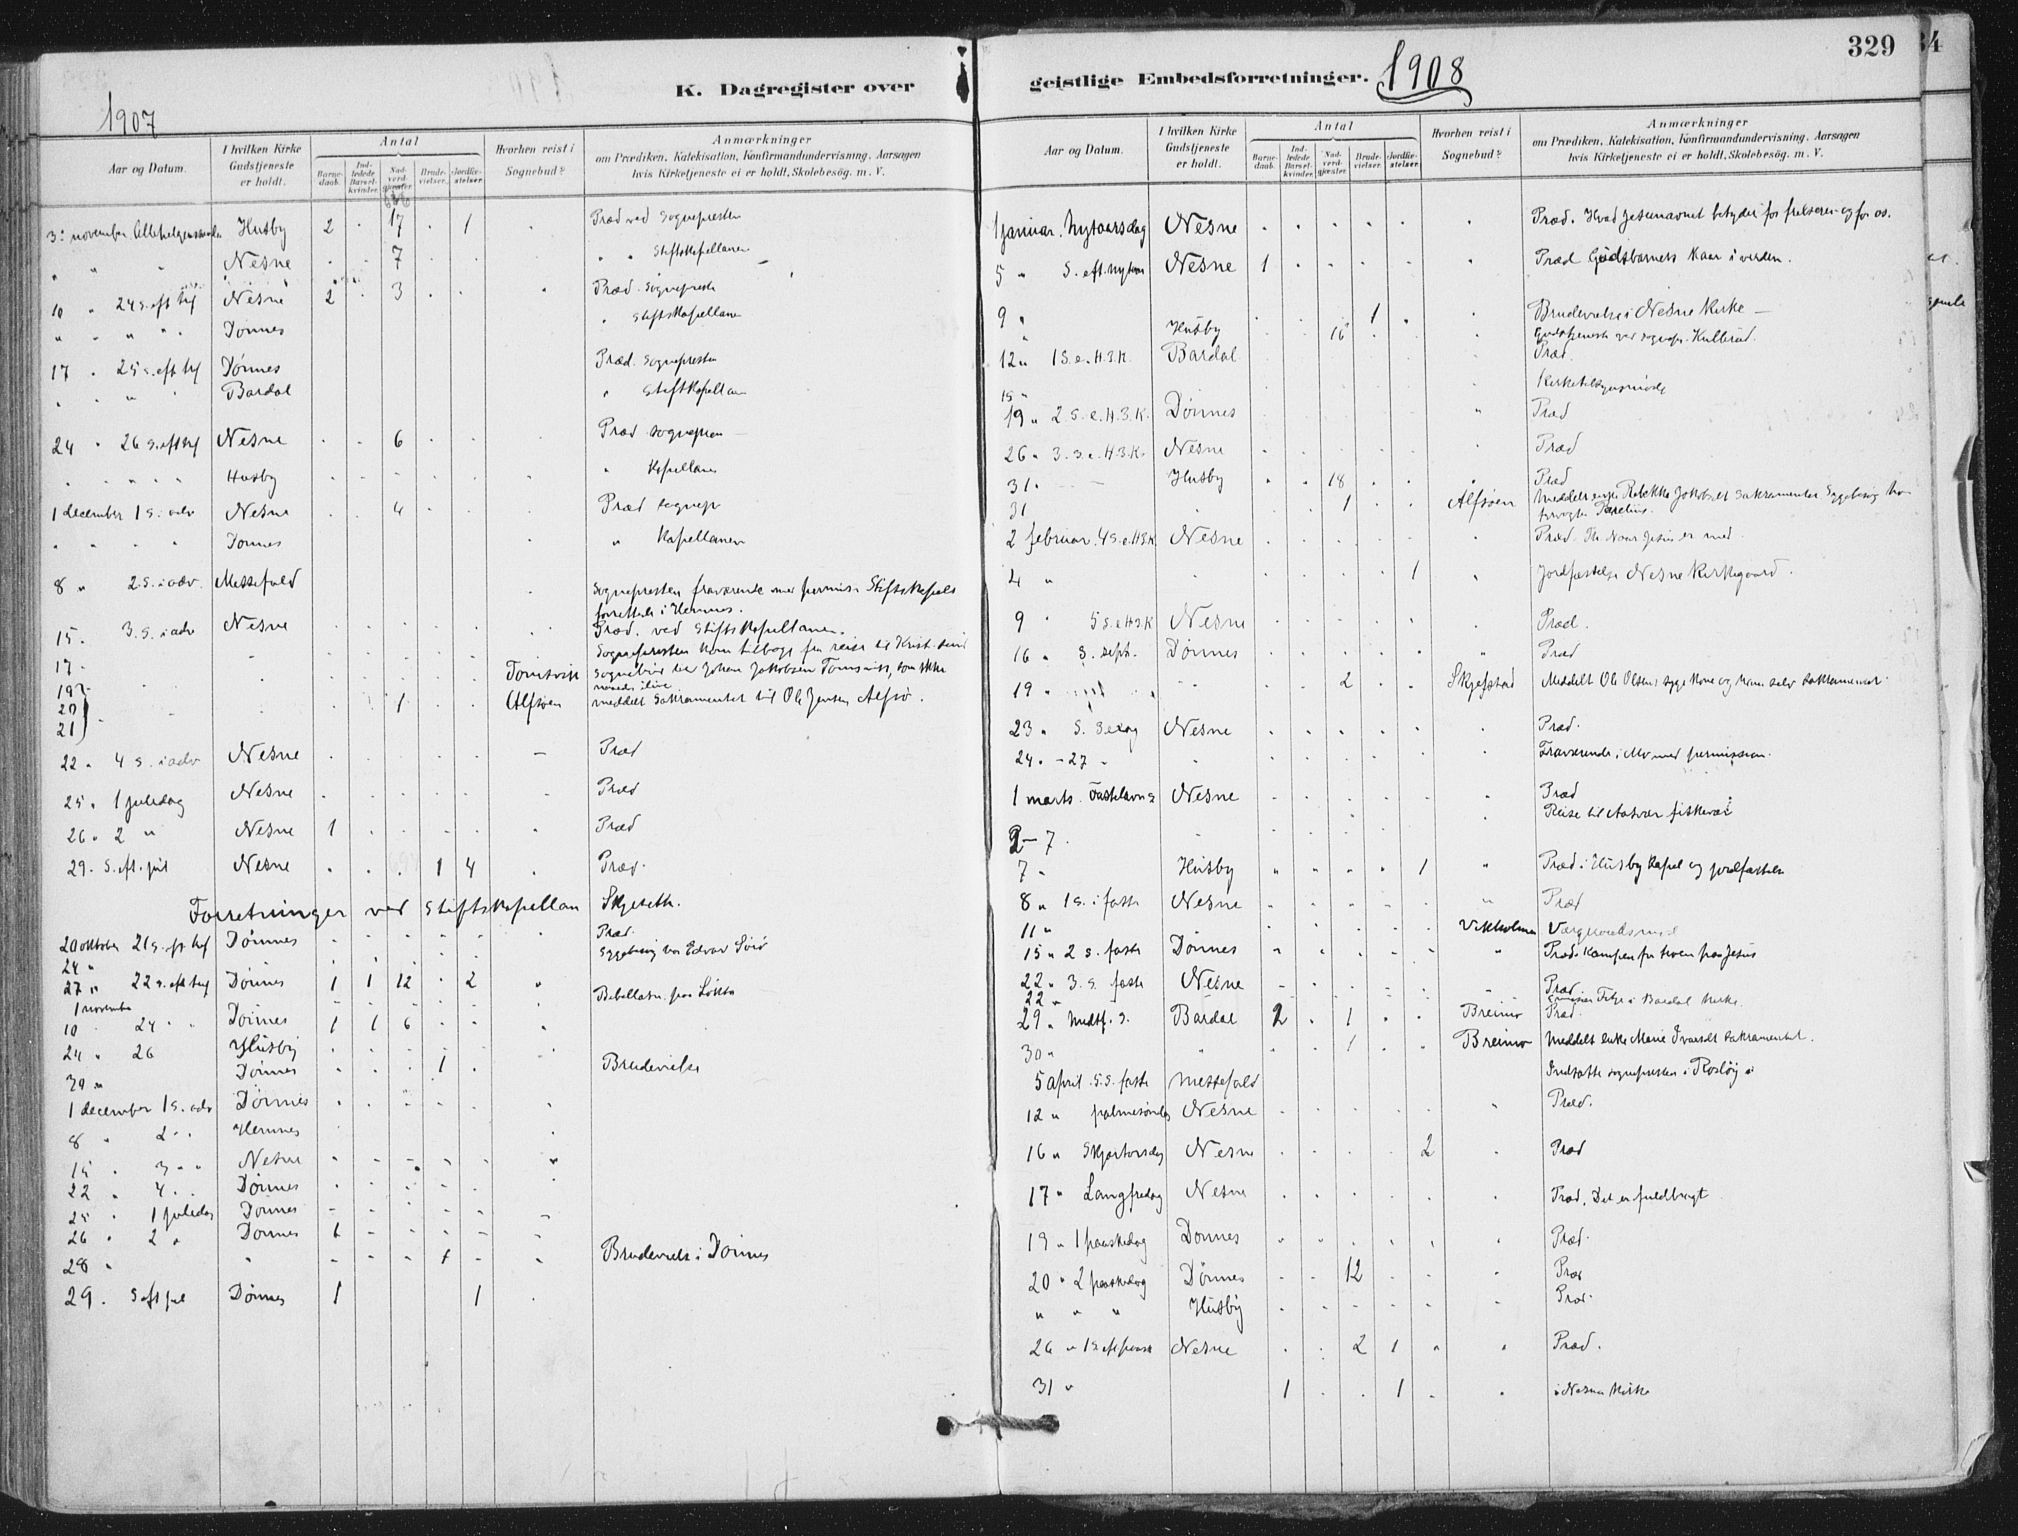 K. Dagregister over
1907
Aar og Datum.
I hvilken Kirke Gudstjeneste er holdt.
Antal
Barnedaab.
Indledede Barselkvinder.
Nadverdgjæster.
Brudevielser.
Jordfæstelser.
Hvorhen reist i Sognebud?
Anmærkninger
om Prædiken, Katekisation, Konfirmandundervisning, Aarsagen
hvis Kirketjeneste ei er holdt, Skolebesög. m. V.
3. november Allehelgens Husby 2 . 17 . 1 . Præd ved Sognepresten
" " " Nesne . . 7 . . " " Stiftskapellanen
10 " 24 s. eft tref Nesne 2 . 3 . . " Præd. Sognepresten
" " " " Dønnes " Stiftskapellanen
17 " 25 s. eft tref Dønnes Præd. Sognepresten
" " " " Bardal " Stiftskapellanen
24 " 26 s. eft tref Nesne . . 6 . . . Præd Sognepresten
" " " " Husby " Kapellanen
1 december 1 s. i adv Nesne . . 4 . . . Præd sognepr
" " " " Dønnes " Kapellanen
8 " 2 s. i adv. Messefald Sognepresten fraværende med permiss. Stiftskapell
forrettede i Hemnes.
15. 3. s. i adv Nesne Præd. ved Stiftskapellanen.
17 " Sognepresten kom tilbage fra reise til
19 Tomsvik Sognebud til Johan Jakobsen Tomsvik, som ikke
20 1 Alfsøen meddelt Sakramentet til Ole Jensen Alfsø.
21
22 " 4 s. i adv Nesne . . . . . - Præd
25 " 1 juledag Nesne Præd
26 " 2 " Nesne 1 . . . . " Præd
29 . S. eft. jul Nesne . . . 1 4 . Præd.
Forretninger ved Stiftskapellan Skjeseth.
20 oktober 21 s. eft tref Dønnes Præd.
24 " Sygebesøg hos Edvar
27 " 22 s. eft tref Dønnes 1 1 12 . 2 "
1 november Bibellæsn. paa Løkta
10 24 " " Dønnes 1 1 6 . . .
24 " 26 Husby
30 " Dønnes . . . 1 . Brudevielse
1 december 1 s. adv Dønnes
8 " 2 " " Hemnes
15 " 3 " " Nesne
22 " 4 " . Dønnes
25 " 1 juledag Dønnes
26 " 2 " Dønnes 1
28 " " . . . 1 . Brudevielse i Dønnes
29 . S eft jul Dønnes 1 1 .
geistlige Embedsforretninger. 1908
329
Aar og Datum.
I hvilken Kirke Gudstjeneste er holdt.
Antal
Barnedaab.
Indledede Barselkvinder.
Nadverdgjæster.
Brudevielser.
Jordfæstelser.
Hvorhen reist i Sognebud?
Anmærkninger
om Prædiken, Katekisation, Konfirmandundervisning, Aarsagen
hvis Kirketjeneste ei er holdt, Skolebesög. m. V.
1 januar. Nytaarsdag Nesne . . . . . . Præd. Hvad Jesunavnet betyder for frelseren og for os.
5 " S. eft. nytaar Nesne 1 . . . . " Præd Gudsbarnets Kaar i verden.
9 " . . . 1 . " Brudevielse i Nesne Kirke -
" Husby . . 16 . . Gudstjeneste ved sognepr. Kulbrud.
12 " 1 S. e. H.3.K. Bardal Præd.
15 " Kirketilsynsmøde
19 " 2. S. e. H.3.K. Dønnes Præd
26 " 3. S. e. H.3.K. Nesne Præd
31 " Husby . . 18 . . . Præd
31 1 Alfsøen Meddelt enke Rebekka Jakobsdt Sakramentet. Sygebesøg hos
2 februar. 4 S. e. H3K Nesne Præd. Th. Naar Jesus er med.
4 " 1 " Jordfæstelse Nesne Kirkegaard.
9 " 5 S. e H3K Nesne Præd.
16 " S. sept. Dønnes Præd
19 " 2 . . Skjefstad Meddelt Ole Olsens syge Kone og ham selv Sakramentet
23 " S. Sexag Nesne Præd.
24 " - 27 " Fraværende i Mo med permission.
1 marts. Fastelavns Nesne Præd
2 - 7. Reise til Aasvær fiskevær
7 " Husby " " " " 1 " Præd. i Husby Kapel og jordfæstelse
8 " 1 S. i faste Nesne Præd
11 " Vikholmen Værgeraadsmøde
15 " 2 s. faste Dønnes " Præd. Kampen for troen paa Jesus
22 " 3. S. faste Nesne Præd
22 " i Bardal Kirke.
29 " Midtf. S. Bardal 2 . 1 . . Breimo Præd.
30 " " . . 1 . . Breimo Meddelt enke Marie Ivarsdt Sakramentet.
5 april. 5. S. faste Messefald Indsatte sognepresten i Rødøy
12 " palmesøndag Nesne Præd.
16 " Skjærtorsdag Nesne . . . . 2 . Præd
17 " Langfredag Nesne Præd. Det er fuldbragt
19 " 1 paaskedag Dønnes Præd.
20 " 2 paaskedag Dønnes . . 12 . . " Præd
" " " Husby Præd.
26 " 1 S. eft paask Nesne . . 2 1 " " Præd.
31 " 1 . . 1 . " i Nesne Kirke